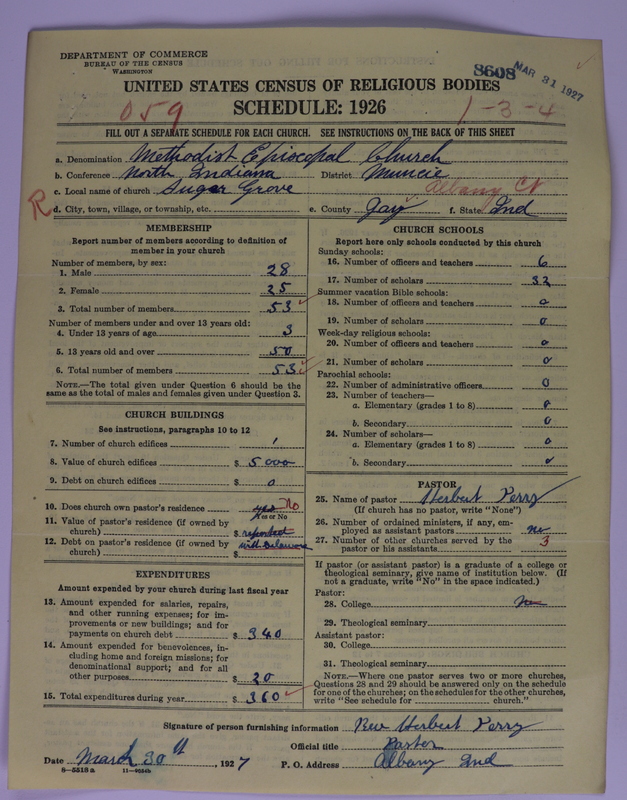 DEPARTMENT OF COMMERCE
BUREAU OF THE CENSUS
WASHINGTON
8608 MAR 31 1927
UNITED STATES CENSUS OF RELIGIOUS BODIES
059 SCHEDULE: 1926 1-3-4
FILL OUT A SEPARATE SCHEDULE FOR EACH CHURCH. SEE INSTRUCTIONS ON THE BACK OF THIS SHEET
a. Denomination Methodist Episcopal Church
b. Conference North Indiana District Muncie
c. Local name of church Sugar Grove Albany Ct
R d. City, town, village, or township, etc. e. County Jay f. State Ind
MEMBERSHIP
Report number of members according to definition of
member in your church
Number of members, by sex:
1. Male 28
2. Female 25
3. Total number of members 53
Number of members under and over 13 years old:
4. Under 13 years of age 3
5. 13 years old and over 50
6. Total number of members 53
NOTE.—The total given under Question 6 should be the
same as the total of males and females given under Question 3.
CHURCH BUILDINGS
See instructions, paragraphs 10 to 12
7. Number of church edifices 1
8. Value of church edifices $ 5000
9. Debt on church edifices $ 0
10. Does church own pastor's residence yes No
Yes or No
11. Value of pastor's residence (if owned by
church) $ reported
12. Debt on pastor's residence (if owned by
church) $ with Delaware
EXPENDITURES
Amount expended by your church during last fiscal year
13. Amount expended for salaries, repairs,
and other running expenses; for im-
provements or new buildings; and for
payments on church debt $ 340
14. Amount expended for benevolences, in-
cluding home and foreign missions; for
denominational support; and for all
other purposes $ 20
15. Total expenditures during year $ 360
CHURCH SCHOOLS
Report here only schools conducted by this church
Sunday schools:
16. Number of officers and teachers 6
17. Number of scholars 32
Summer vacation Bible schools:
18. Number of officers and teachers 0
19. Number of scholars 0
Week-day religious schools:
20. Number of officers and teachers 0
21. Number of scholars 0
Parochial schools:
22. Number of administrative officers 0
23. Number of teachers—
a. Elementary (grades 1 to 8) 0
b. Secondary 0
24. Number of scholars—
a. Elementary (grades 1 to 8) 0
b. Secondary 0
PASTOR
25. Name of pastor Herbert Perry
(If church has no pastor, write "None")
26. Number of ordained ministers, if any, em-
ployed as assistant pastors no
27. Number of other churches served by the
pastor or his assistants 3
If pastor (or assistant pastor) is a graduate of a college or
theological seminary, give name of institution below. (If
not a graduate, write "No" in the space indicated.)
Pastor:
28. College no
29. Theological seminary
Assistant pastor:
30. College
31. Theological seminary
NOTE.—Where one pastor serves two or more churches,
Questions 28 and 29 should be answered only on the schedule
for one of the churches; on the schedules for the other churches,
write "See schedule for church."
Signature of person furnishing information Rev Herbert Perry
Official title Pastor
Date March 30th, 1927 P. O. Address Albany Ind
8—5518 a